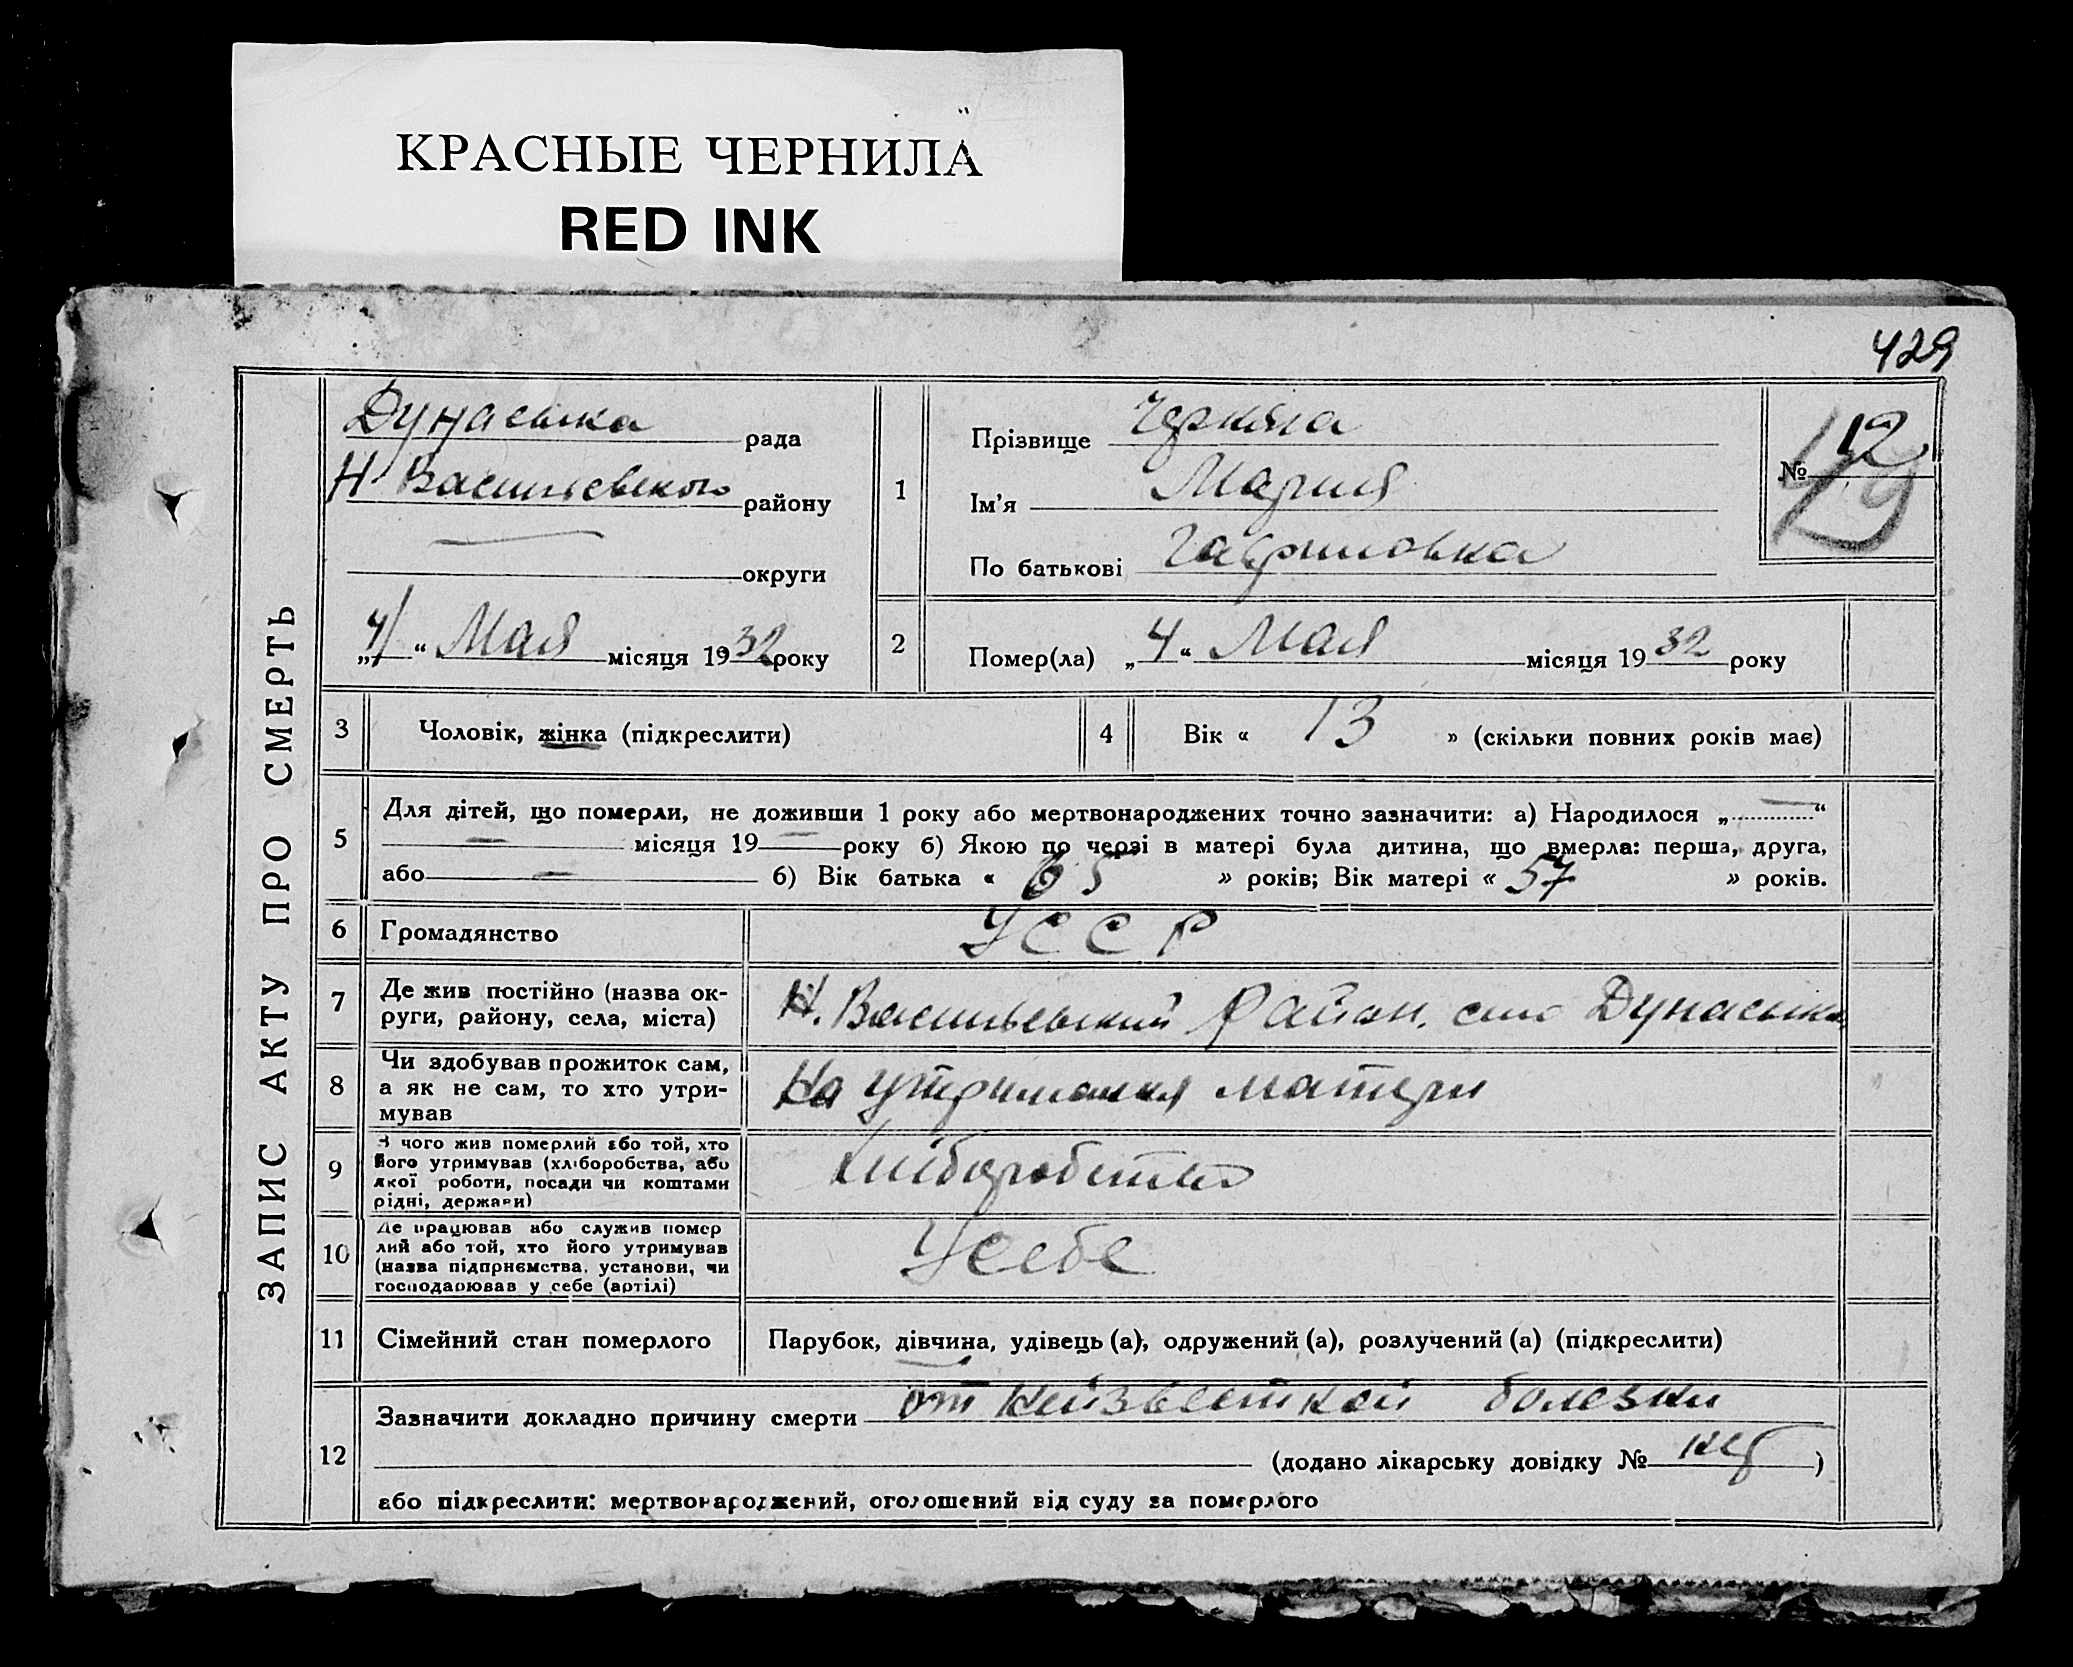 КРАСНЫЕ ЧЕРНИЛА
RED INK
429
ЗАПИС АКТУ ПРО СМЕРТЬ
Дунаевка рада
Н. Васильевского району
округи
„4“ Мая місяця 1932 року
1
Прізвище
Ім'я Мария
По батькові Гавриловна
№ 12
429
2
Помер(ла) „4“ Мая місяця 1932 року
3
Чоловік, жінка (підкреслити)
4
Вік « 13 » (скільки повних років має)
5
Для дітей, що померли, не доживши 1 року або мертвонароджених точно зазначити: а) Народилося „ “
місяця 19 року б) Якою по черзі в матері була дитина, що вмерла: перша, друга,
або б) Вік батька « 65 » років; Вік матері « 57 » років.
6
Громадянство
УССР
7
Де жив постійно (назва ок-
руги, району, села, міста)
Н. Васильевский Район. село Дунаевка
8
Чи здобував прожиток сам,
а як не сам, то хто утри-
мував
На утримания матери
9
З чого жив померлий або той, хто
його утримував (хліборобства, або
якої роботи, посади чи коштами
рідні, держави)
Хліборобство
10
Де працював або служив помер
лий або той, хто його утримував
(назва підприємства, установи, чи
господарював у себе (артілі)
У себе
11
Сімейний стан померлого
Парубок, дівчина, удівець (а), одружений (а), розлучений (а) (підкреслити)
12
Зазначити докладно причину смерти от неизвестной болезни
(додано лікарську довідку № )
або підкреслити: мертвонароджений, оголошений від суду за померлого